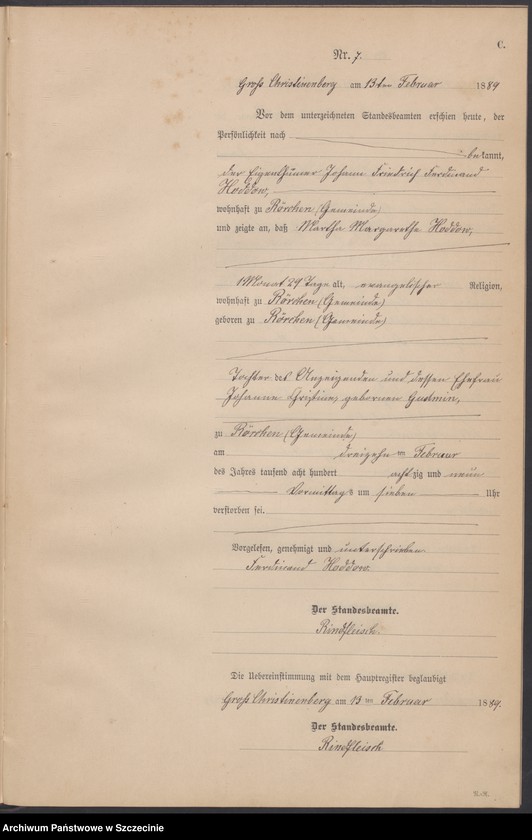 C.
Nr. 7.
Groß Christinenberg am 13ten Februar 1889
Vor dem unterzeichneten Standesbeamten erschien heute, der
Persönlichkeit nach
bekannt,
der Eigenthümer Johann Friedrich Ferdinand
Hoddow,
wohnhaft zu Rörchen (Gemeinde)
und zeigte an, daß Martha Margarethe Hoddow,
1 Monat 29 Tage alt, evangelischer Religion,
wohnhaft zu Rörchen (Gemeinde)
geboren zu Rörchen (Gemeinde)
Tochter des Anzeigenden und dessen Ehefrau
Johanne Christine, gebornen
zu Rörchen (Gemeinde)
am dreizehn ten Februar
des Jahres tausend acht hundert achtzig und neun
Vormittags um sieben Uhr
verstorben sei.
Vorgelesen, genehmigt und unterschrieben
Ferdinand Hoddow.
Der Standesbeamte.
Rindfleisch.
Die Uebereinstimmung mit dem Hauptregister beglaubigt
Groß Christinenberg am 13 ten Februar 1889.
Der Standesbeamte.
Rindfleisch
Archiwum Państwowe w Szczecinie